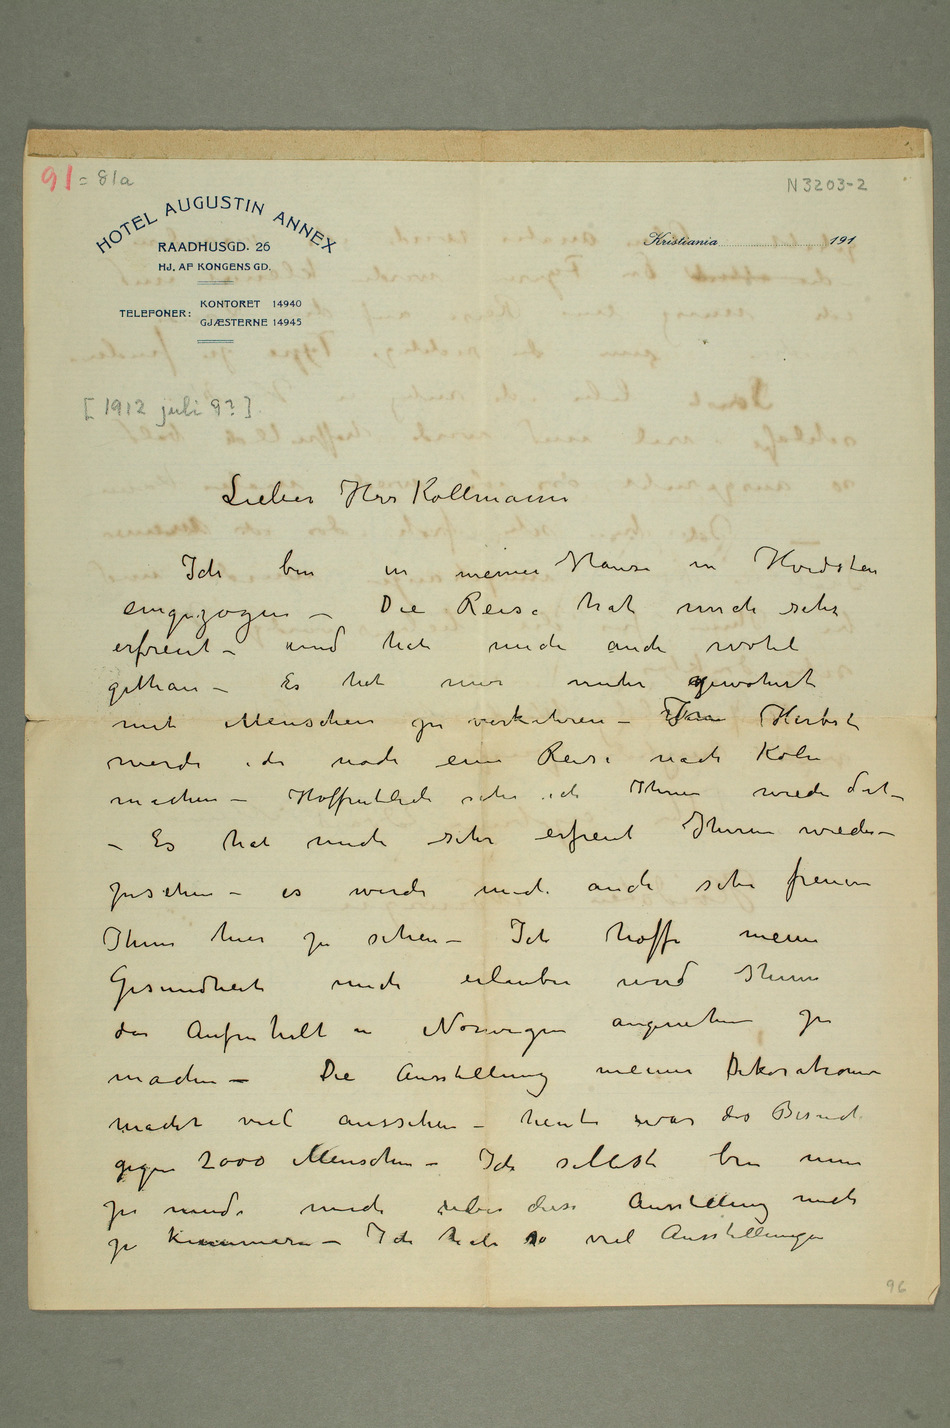 91 = 81a
N 3203-2
HOTEL AUGUSTIN ANNEX
RAADHUSGD. 26
HJ. AF KONGENS GD.
TELEFONER: KONTORET 14940
GJÆSTERNE 14945
Kristiania 191
[1912 juli 9?]
Lieber Herr Kollmann
Ich bin in meinem Hause in Hvidsten
eingezogen – Die Reise hat mich sehr
erfreut – und hat mich auch wohl
gethan – Es hat mir mehr gewöhnt
mit Menschen zu verkehren – Im Herbst
werde ich noch eine Reise nach Köln
machen – Hoffentlich sehe ich Ihnen wieder dort –
– Es hat mich sehr erfreut Ihnen wieder –
zu sehen – es wird mich auch sehr freuen
Ihnen hier zu sehen – Ich hoffe meine
Gesundheit mich erlauben wird Ihnen
das Aufenhalt in Norwegen angenehm zu
machen – Die Ausstellung meiner Dekorationen
macht viel aussehen – heute war das Besuch
gegen 2000 Menschen – Ich selbst bin nun
zu müde mich über diese Ausstellung mich
zu kümmern – Ich habe so viel Ausstellungen
96